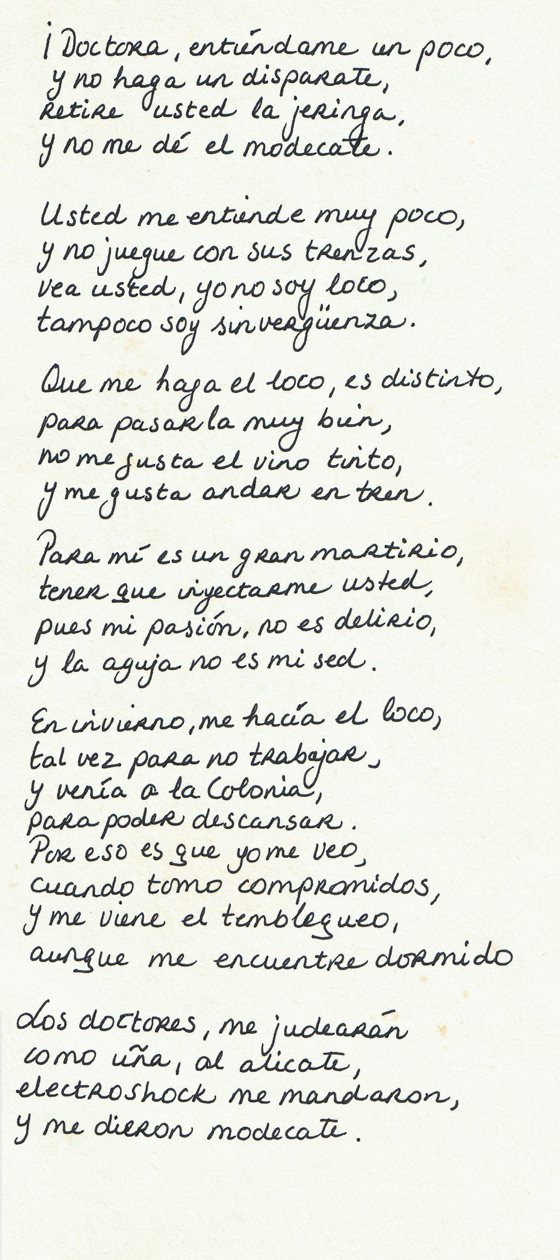 ¡Doctora, entiéndame un poco,
y no haga un disparate,
retire usted la jeringa,
y no me dé el modecate.
Usted me entiende muy poco,
y no juegue con sus trenzas,
vea usted, yo no soy loco,
tampoco soy sinvergüenza.
Que me haga el loco, es distinto,
para pasarla muy bien,
no me gusta el vino tinto,
y me gusta andar en tren.
Para mí es un gran martirio,
tener que inyectarme usted,
pues mi pasión, no es delirio,
y la aguja no es mi sed.
En invierno, me hacía el loco,
tal vez para no trabajar,
y venía a la Colonia,
para poder descansar.
Por eso es que yo me veo,
cuando tomo compromidos,
y me viene el temblequeo,
aunque me encuentre dormido
Los doctores, me judearán
como uña, al alicate,
electroshock me mandaron,
y me dieron modecate.